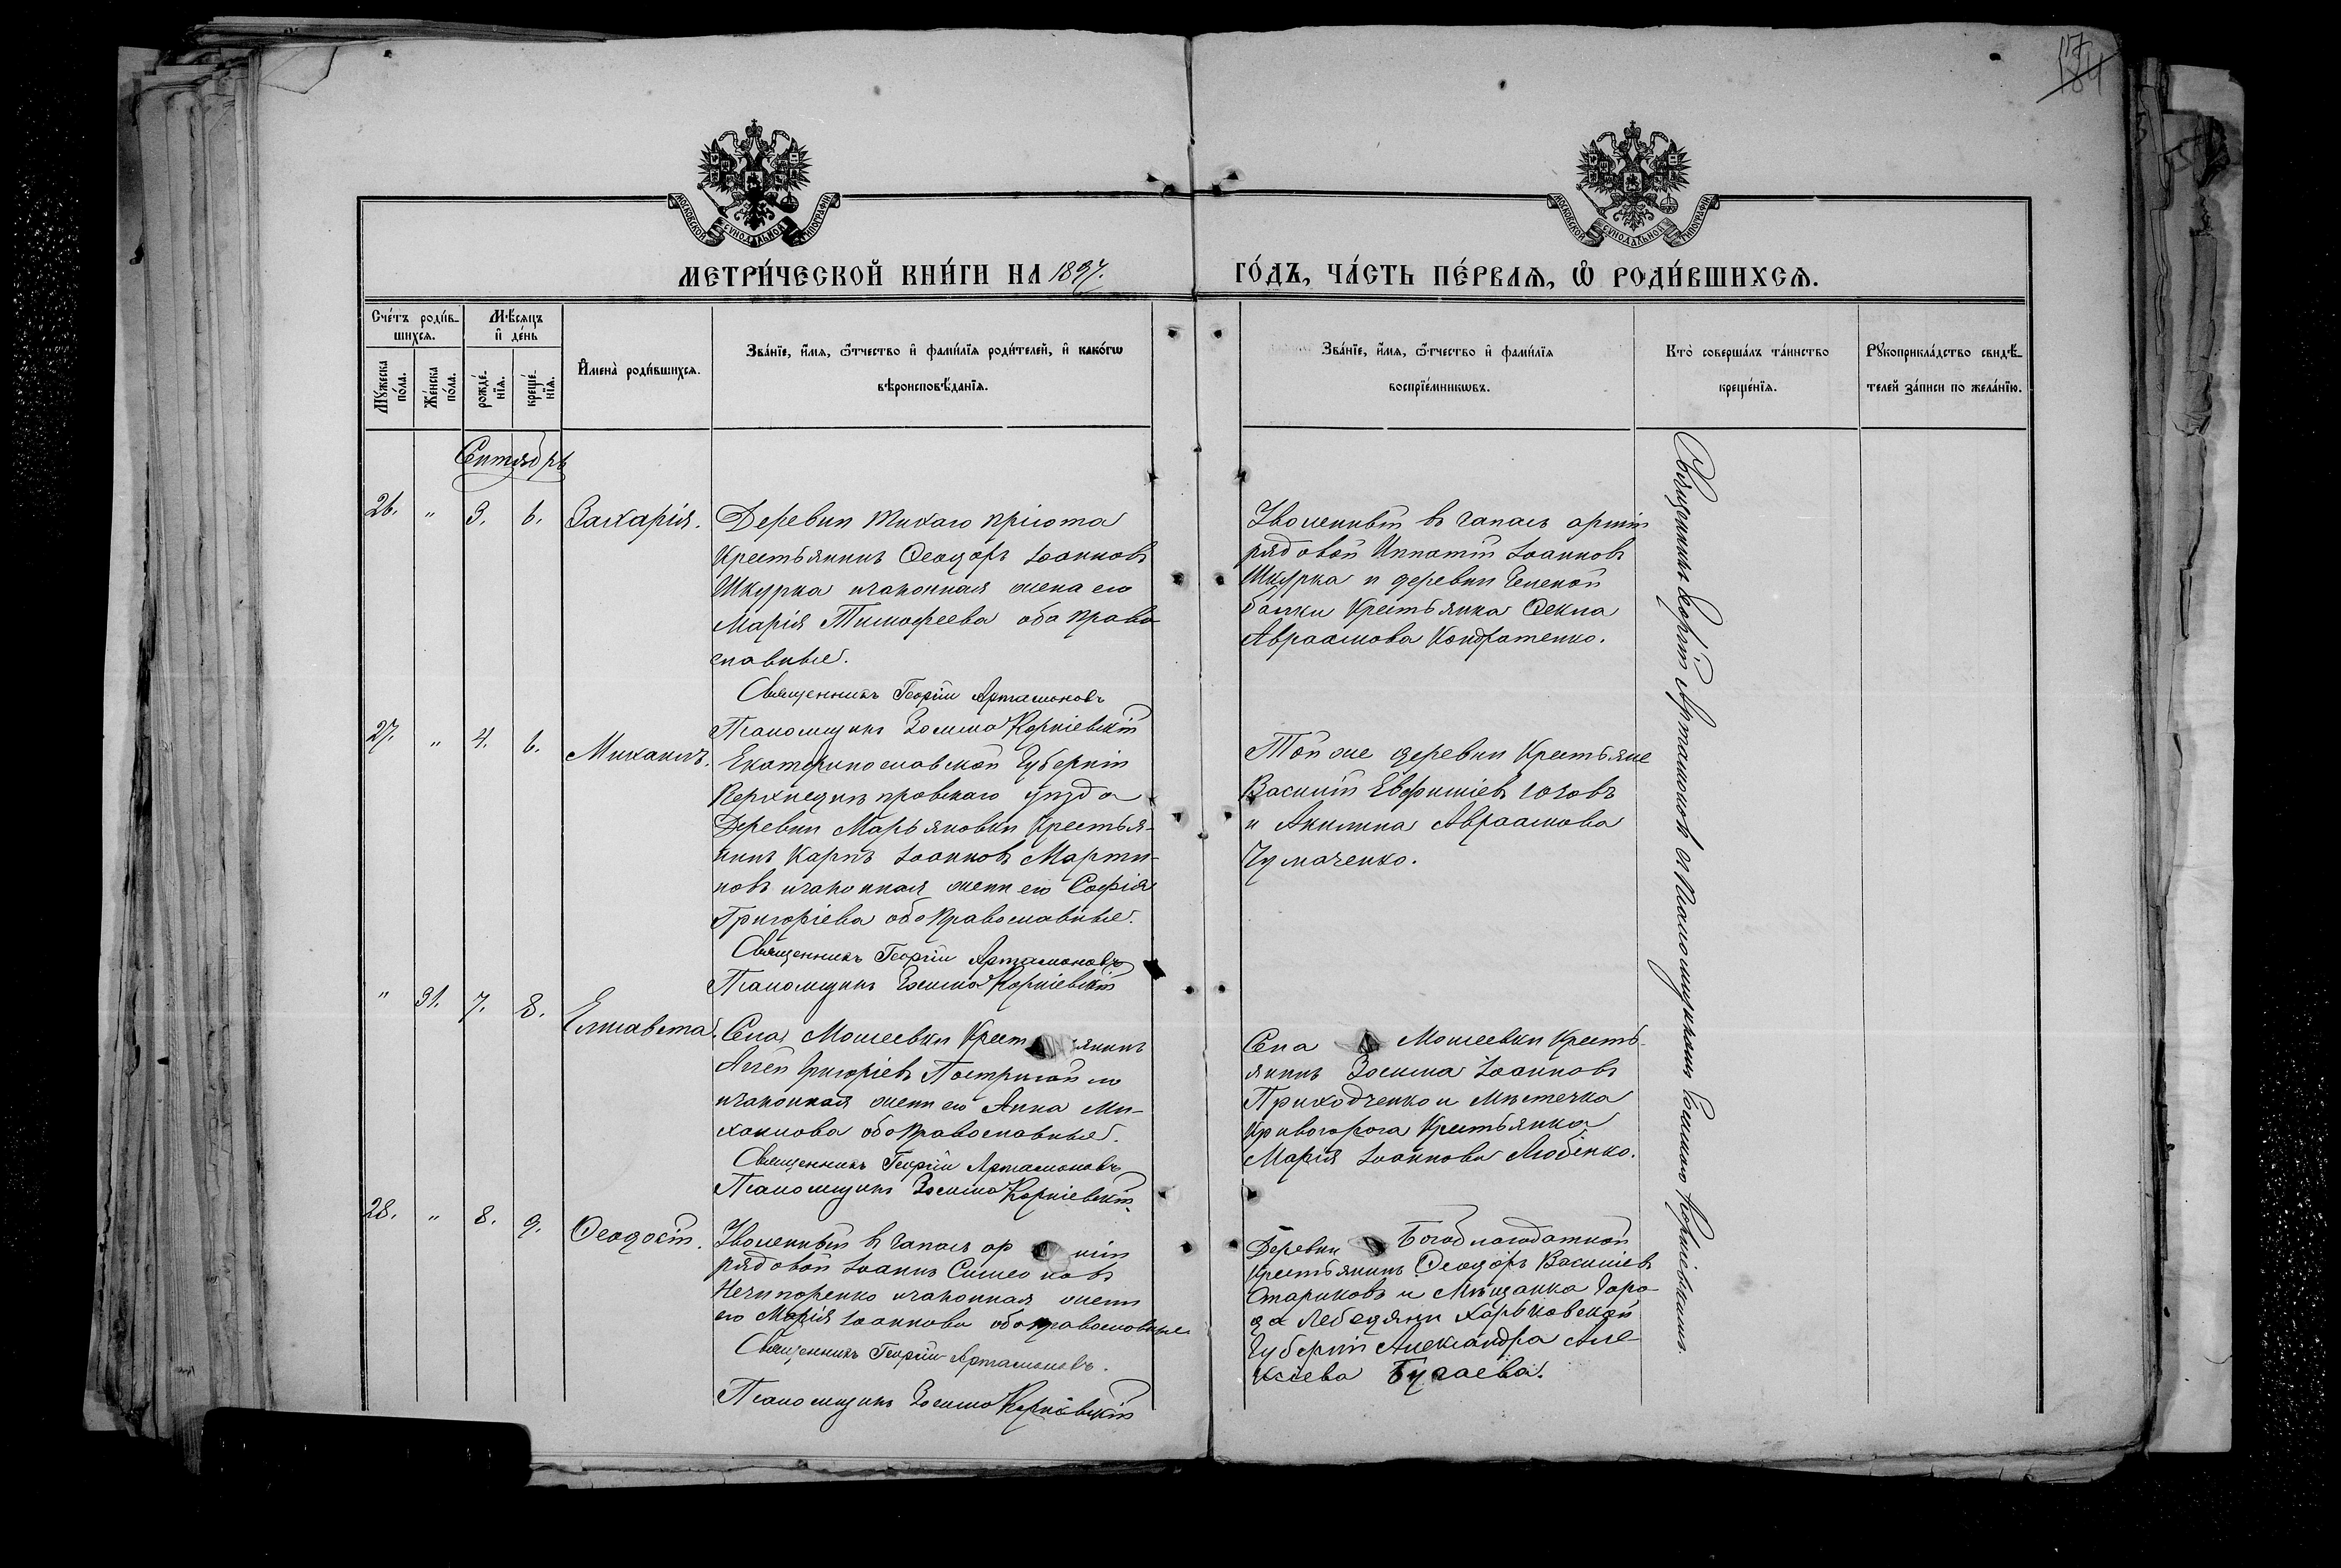 184
МОСКОВСКОЙ СУНОДАЛЬНОЙ ТИПОГРАФІИ
МОСКОВСКОЙ СУНОДАЛЬНОЙ ТИПОГРАФІИ
МЕТРИ́ЧЕСКОЙ КНИ́ГИ НА 1897.
ГО́ДЪ, ЧА́СТЬ ПЕ́РВАѦ, Ѡ РОДИ́ВШИХСѦ.
Сче́тъ роди́в-
шихсѧ.
Мѣ́сѧцъ
и де́нь
Мꙋ́жеска
по́ла.
Же́нска
по́ла.
рожде́-
нїѧ.
креще́-
нїѧ.
Имена̀ роди́вшихсѧ.
Зва́нїе, и́мѧ, ѻ҆́тчество и фами́лїѧ роди́телей, и како́гѡ
вѣроисповѣ́данїѧ.
Зва́нїе, и́мѧ, ѻ҆́тчество и фами́лїѧ
воспрїе́мникѡвъ.
Кто̀ соверша́лъ та́инство
креще́нїѧ.
Рꙋкоприкла́дство свидѣ́-
телей за́писи по жела́нїю.
Сентябрь
26. " 3. 6. Захарія.
Деревни Тихаго пріюта
Крестьянинъ Ѳеодоръ Іоанновъ
Шкурка и законная жена его
Марія Тимофеева оба право
славные.
Священникъ Георгій Артамоновъ
Псаломщикъ Зосима Корніевскій
Уволенный въ запасъ арміи
рядовой Ипатій Іоанновъ
Шкурка и деревни
балки Крестьянка Ѳекла
Авраамова Кондратенко.
27. " 4. 6. Михаилъ.
Екатеринославской Губерніи
Верхнеднѣпровскаго уѣзда
Деревни Марьяновки Крестья-
нинъ Карпъ Іоанновъ Марти-
новъ и законная жена его Софія
Григоріева оба Православные.
Священникъ Георгій Артамоновъ
Псаломщикъ Зосима Корніевскій
Той же деревни Крестьяне
Василій Евфиміевъ
и Акилина Авраамова
Чумаченко.
" 31. 7. 8. Елисавета.
Села Моисеевки Крестьянинъ
Григоріевъ
и законная жена его Анна Ми-
хаилова оба Православные.
Священникъ Георгій Артамоновъ
Псаломщикъ Зосима Корніевскій.
Села Моисеевки Кресть-
янинъ Зосима Іоанновъ
Приходченко и Мѣстечка
Кривогорога Крестьянка
Марія Іоаннова Любенко.
28. " 8. 9. Ѳеодосій.
Уволенный въ запасъ арміи
рядовой Іоаннъ Симеоновъ
Нечипоренко и законная жена
его Марія Іоаннова оба православные
Священникъ Георгій Артамоновъ.
Псаломщикъ Зосима Корніевскій
Деревни Богоблагодатной
Крестьянинъ Ѳеодоръ Василіевъ
Стариковъ и Мѣщанка Горо-
да Лебедяни Харьковской
Губерніи Александра Але-
ксіева Бугаева.
Священникъ Георгій Артамоновъ съ Псаломщикомъ Зосимою Корніевскимъ